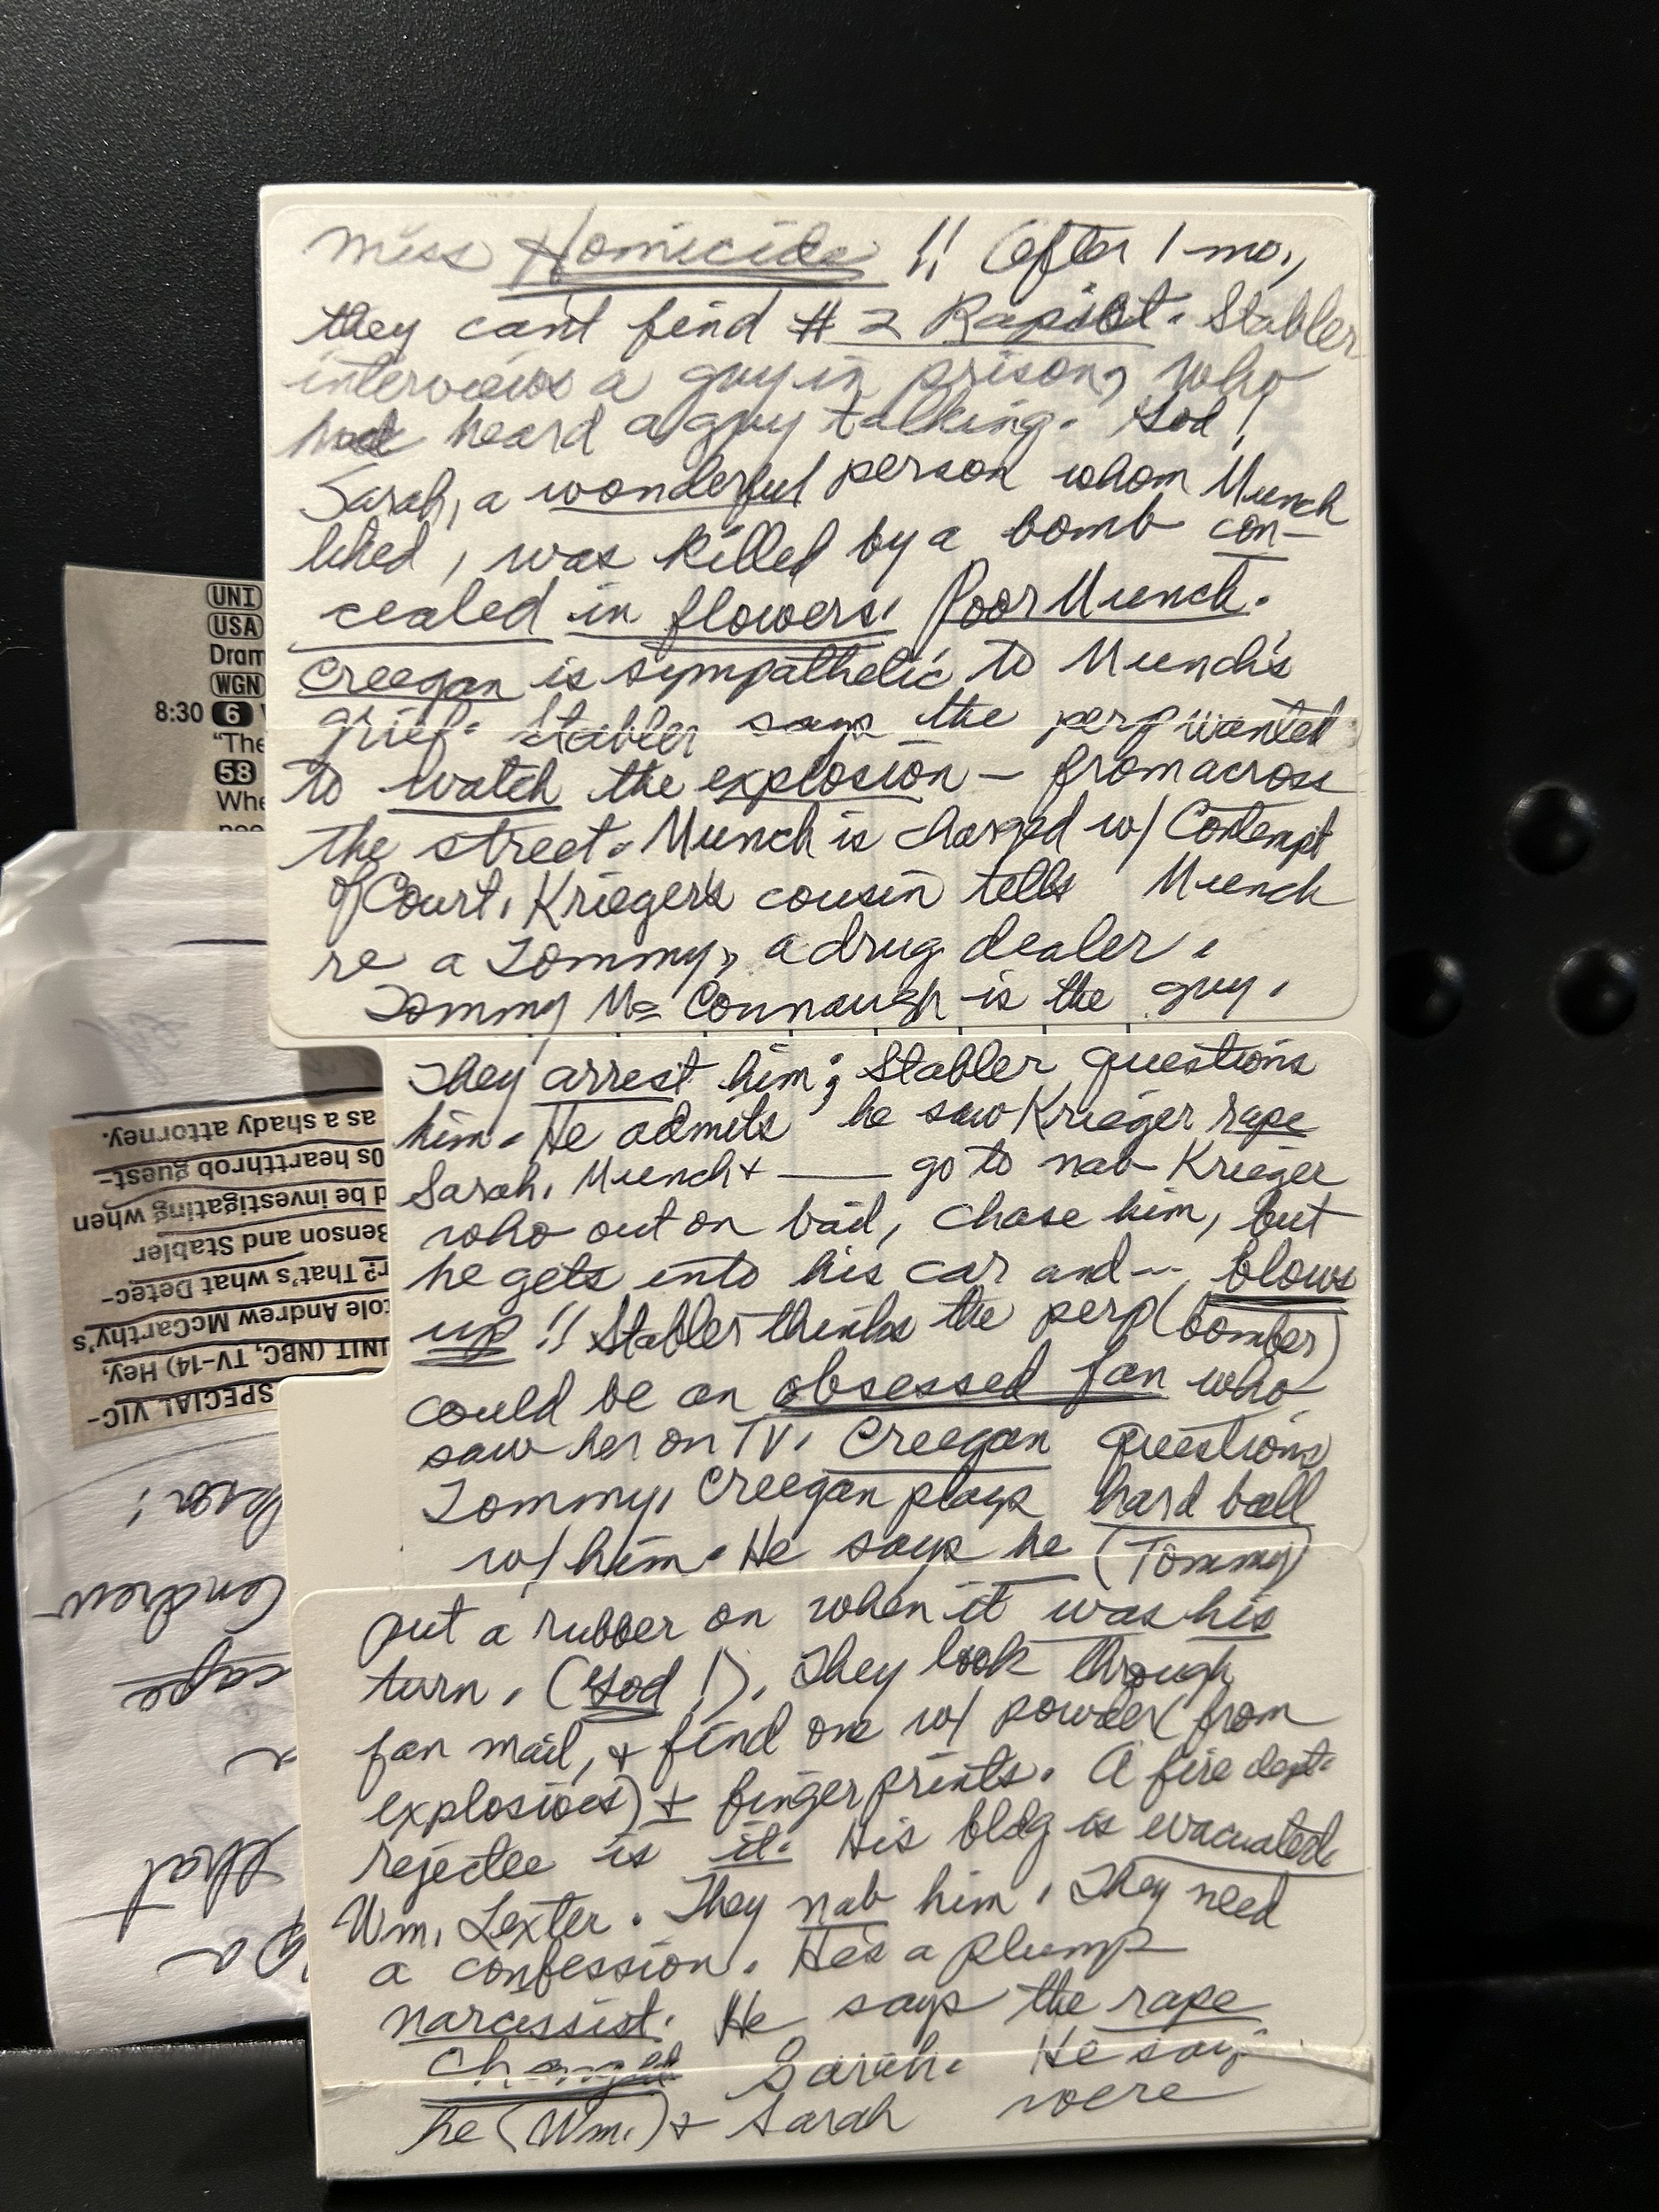 Miss Homicide !! After 1 mo.,
they can't find #2 Rapist. Stabler
interviews a guy in prison, who
had heard a guy talking. God!
Sarah, a wonderful person whom Munch
liked, was killed by a bomb con-
cealed in flowers. Poor Munch.
Creegan is sympathetic to Munch's
grief. Stabler says the perp wanted
to watch the explosion – from across
the street. Munch is charged w/ Contempt
of Court. Krieger's cousin tells Munch
re a Tommy, a drug dealer.
Tommy Mc Connaugh is the guy.
They arrest him; Stabler questions
him. He admits he saw Krieger rape
Sarah. Munch + ____ go to nab Krieger
who out on bail, chase him, but
he gets into his car and -- blows
up !! Stabler thinks the perp (bomber)
could be an obsessed fan who
saw her on TV. Creegan questions
Tommy. Creegan plays hard ball
w/ him. He says he (Tommy)
put a rubber on when it was his
turn. (God!). They look through
fan mail, + find one w/ powder (from
explosives) + fingerprints. A fire dept.
rejectee is it. His bldg is evacuated.
Wm. Lexter. They nab him. They need
a confession. He's a plump
narcissist. He says the rape
changed Sarah. He says
he (Wm.) + Sarah were
UNI
USA
Dram
WGN
8:30 6
"The
58
Whe
SPECIAL VIC-
UNIT (NBC, TV-14) Hey,
cole Andrew McCarthy's
r? That's what Detec-
Benson and Stabler
d be investigating when
0s heartthrob guest-
as a shady attorney.
Andrew
cape
that